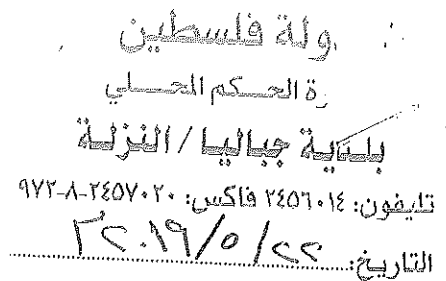 ولة فلسطين
رة الحكم المحلي
بلدية جباليا / النزلة
تليفون: ٢٤٥٦٠١٤ فاكس: ٢٤٥٧٠٢٠-٨-٩٧٢
التاريخ: ٢٢/٥/٢٠١٩م